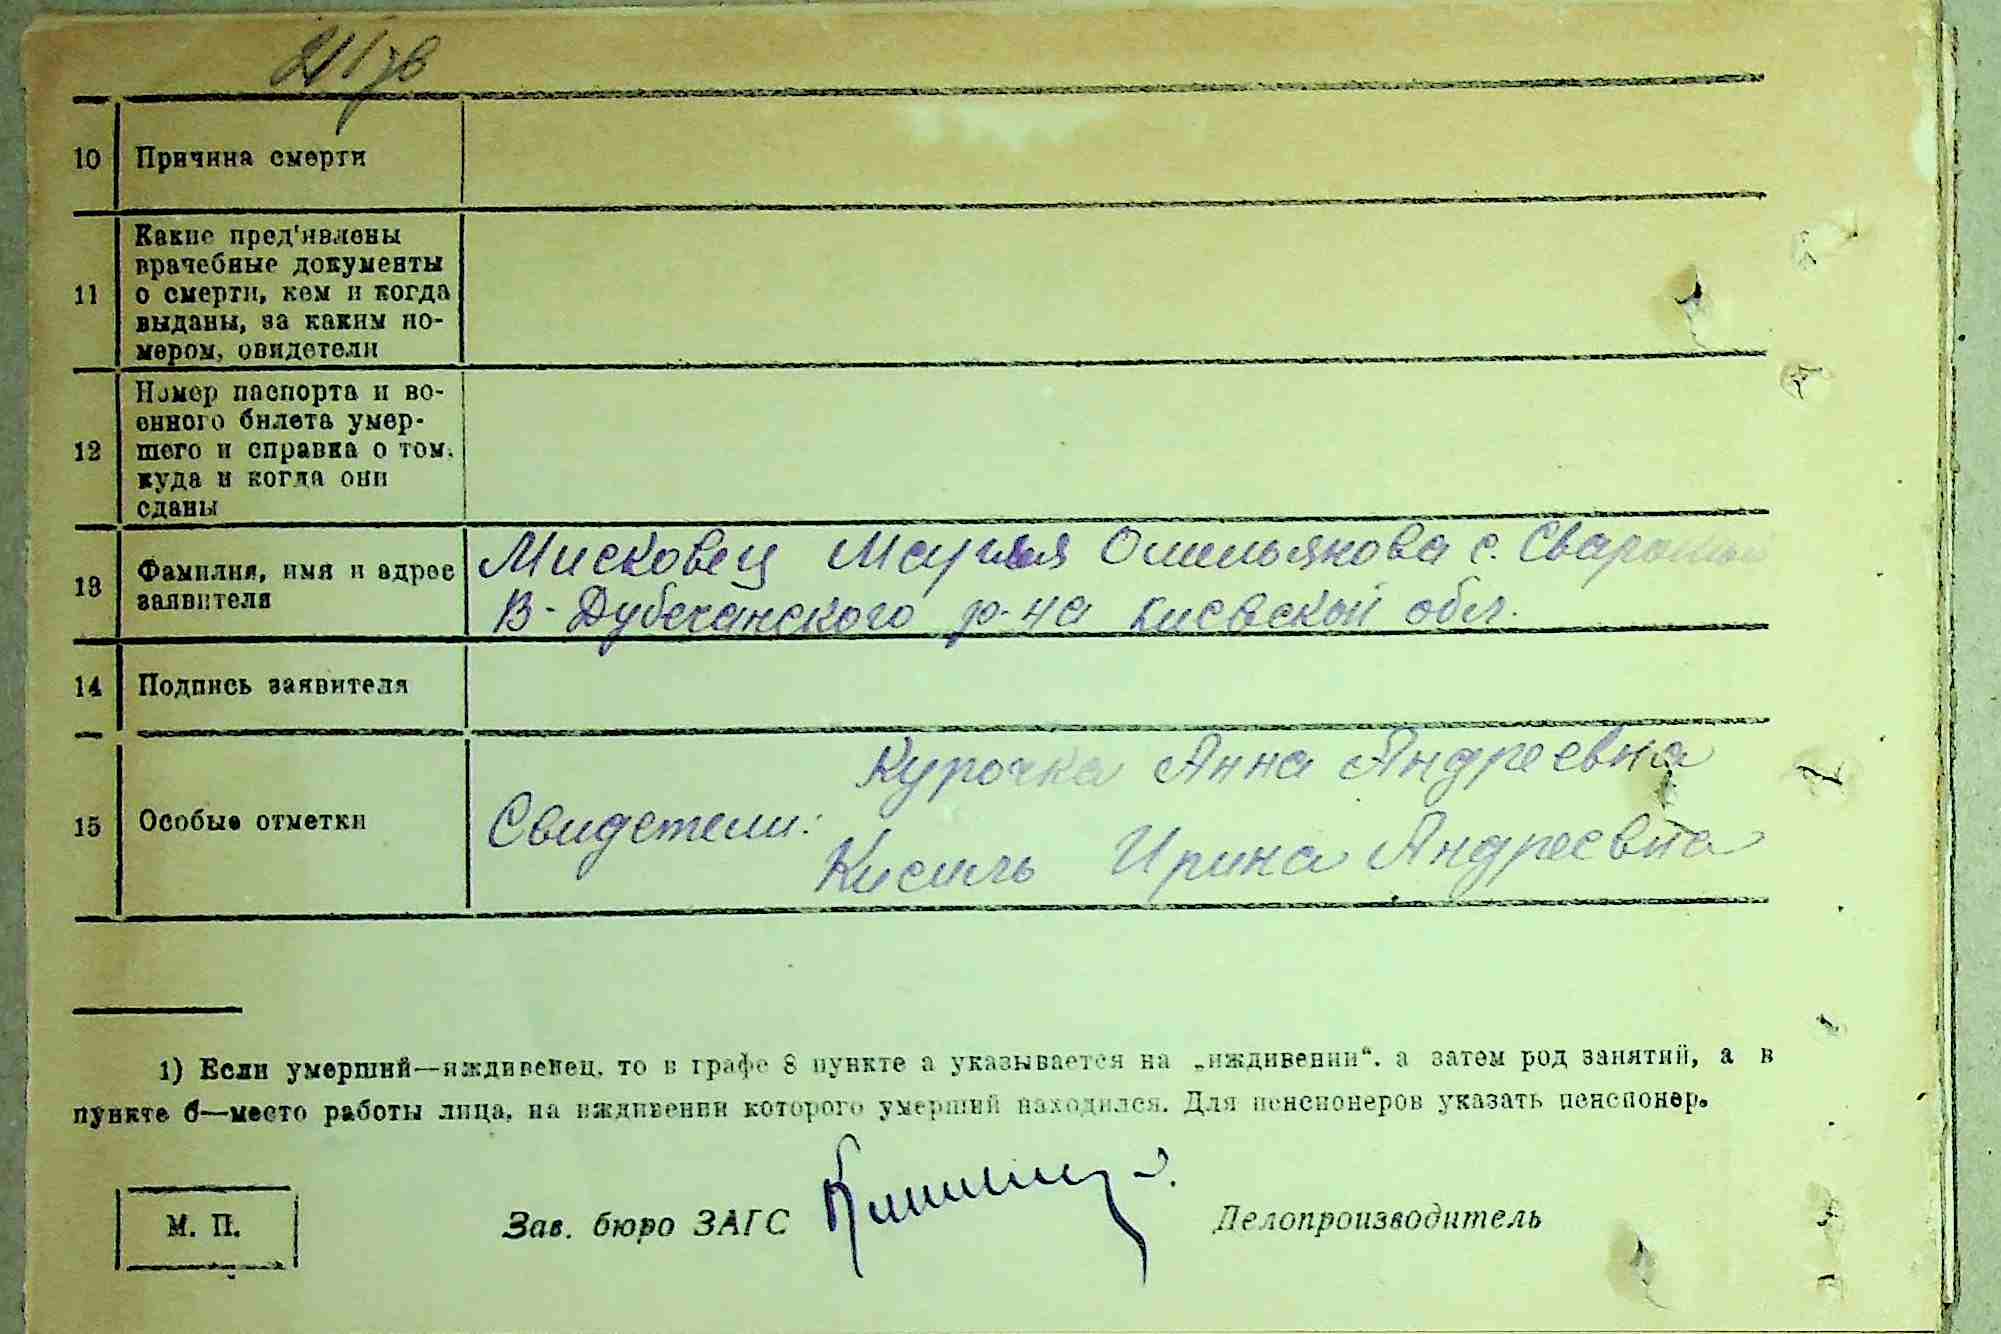 10 Причина смерти
11 Какие пред'явлены
врачебные документы
о смерти, кем и когда
выданы, за каким но-
мером, свидетели
12 Номер паспорта и во-
енного билета умер-
шего и справка о том,
куда и когда они
сданы
13 Фамилия, имя и адрес
заявителя
Мисковец Мария Омельянова с. Сваромье
В-Дубечанского р-на Киевской обл.
14 Подпись заявителя
15 Особые отметки
Курочка Анна Андреевна
Свидетели:
Кисиль Ирина Андреевна
1) Если умерший—иждивенец, то в графе 8 пункте а указывается на „иждивении“. а затем род занятий, а в
пункте б—место работы лица, на иждивении которого умерший находился. Для пенсионеров указать пенсионер.
М. П.
Зав. бюро ЗАГС
Делопроизводитель